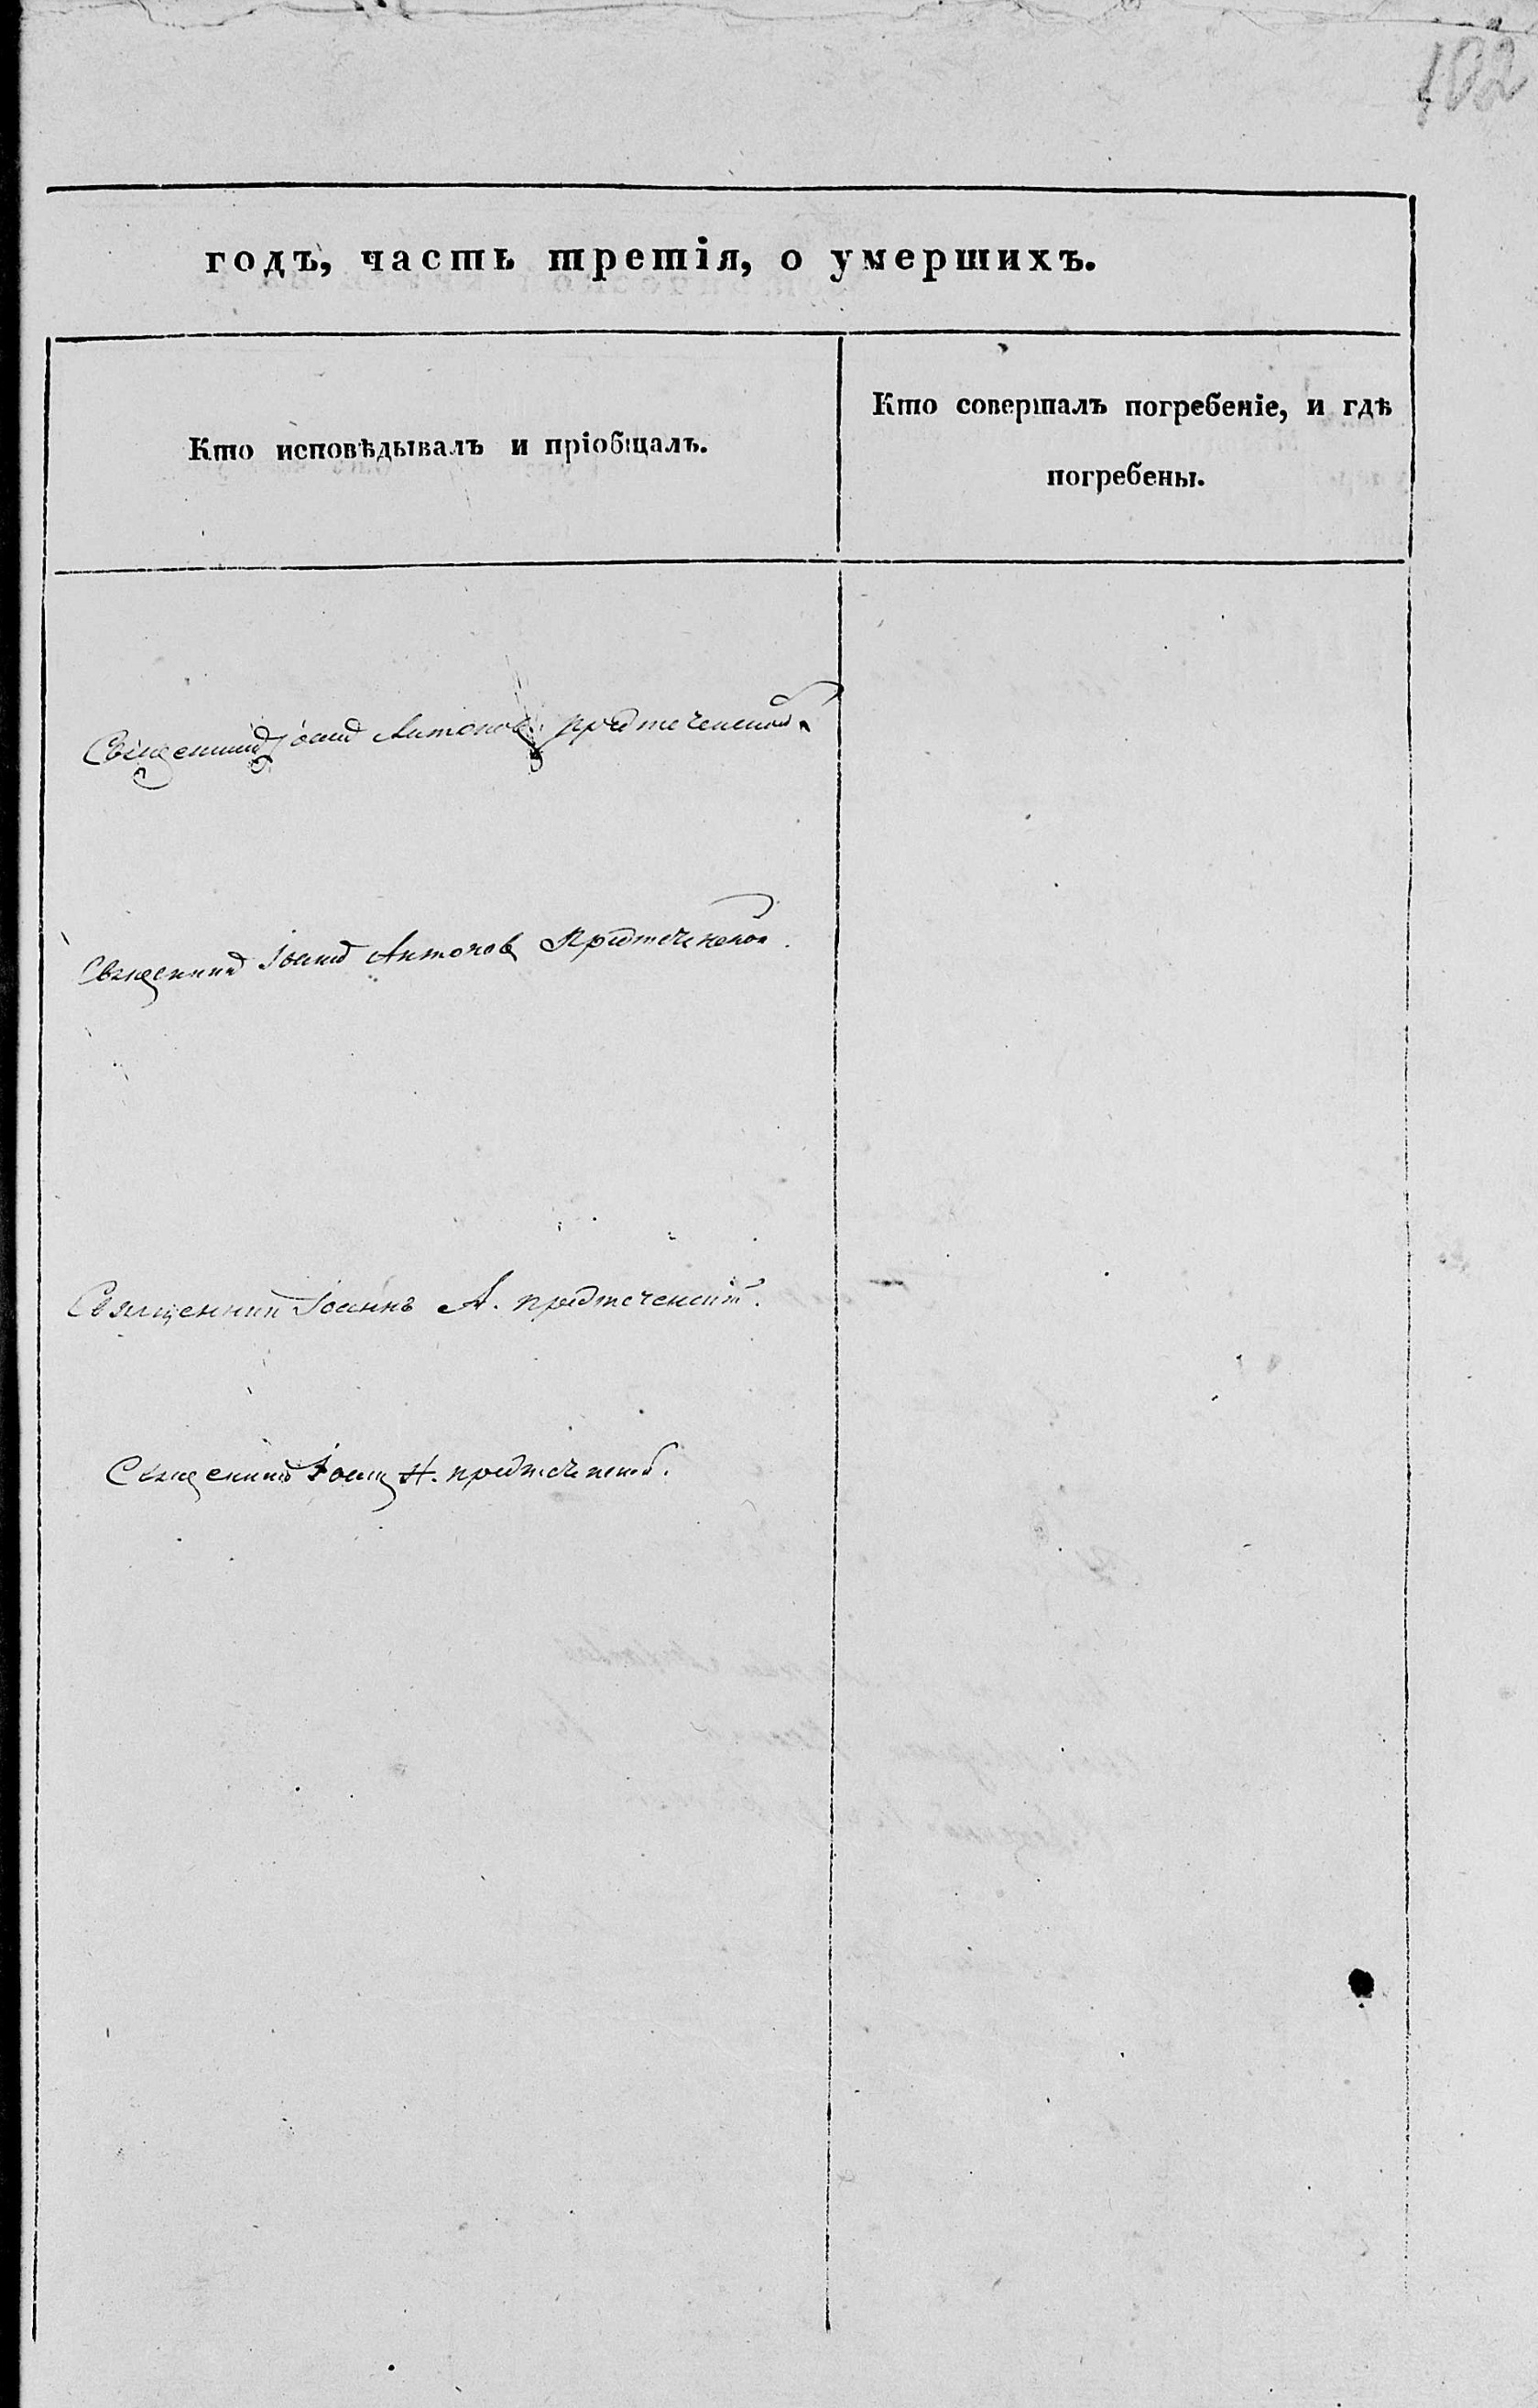 102
годъ, часть третія, о умершихъ.
Кто исповѣдывалъ и пріобщалъ.
Кто совершалъ погребеніе, и гдѣ
погребены.
Священникъ Іоаннъ Антоновъ предтеченской
Священникъ Іоаннъ Антоновъ Предтеченской.
Священникъ Іоаннъ А. предтеченскій.
Священникъ Іоаннъ А. предтеченскій.